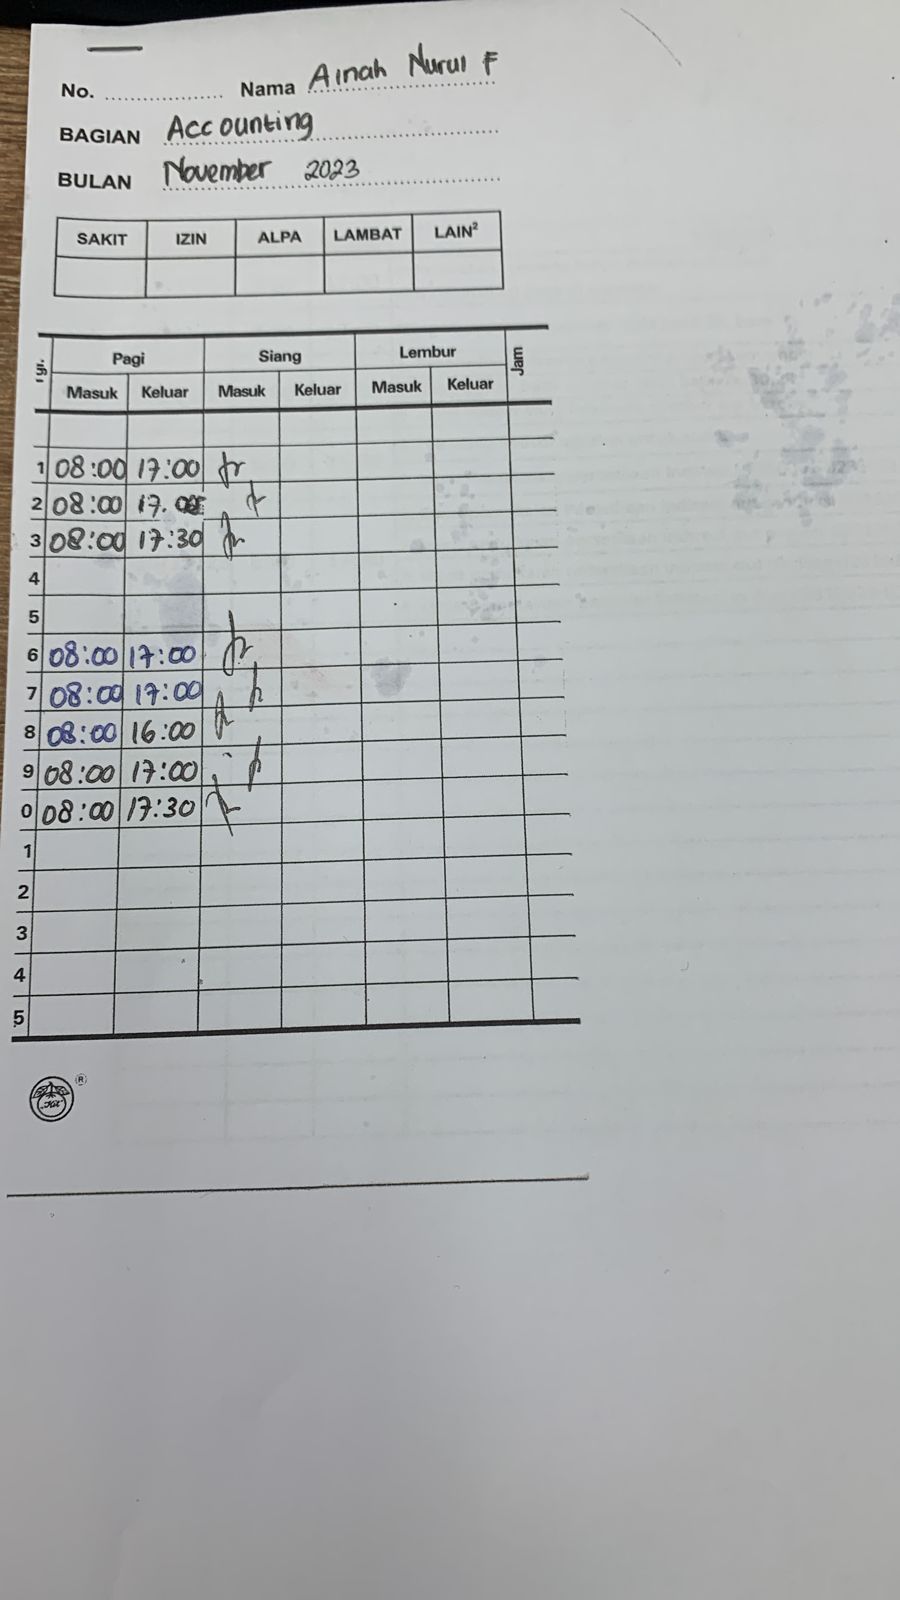 No. .................... Nama Ainah Nurul F
BAGIAN Accounting
BULAN November 2023
SAKIT IZIN ALPA LAMBAT LAIN²
Tgl. Pagi Siang Lembur Jam
Masuk Keluar Masuk Keluar Masuk Keluar
1 08:00 17:00
2 08:00 17.00
3 08:00 17:30
4
5
6 08:00 17:00
7 08:00 17:00
8 08:00 16:00
9 08:00 17:00
0 08:00 17:30
1
2
3
4
5
®